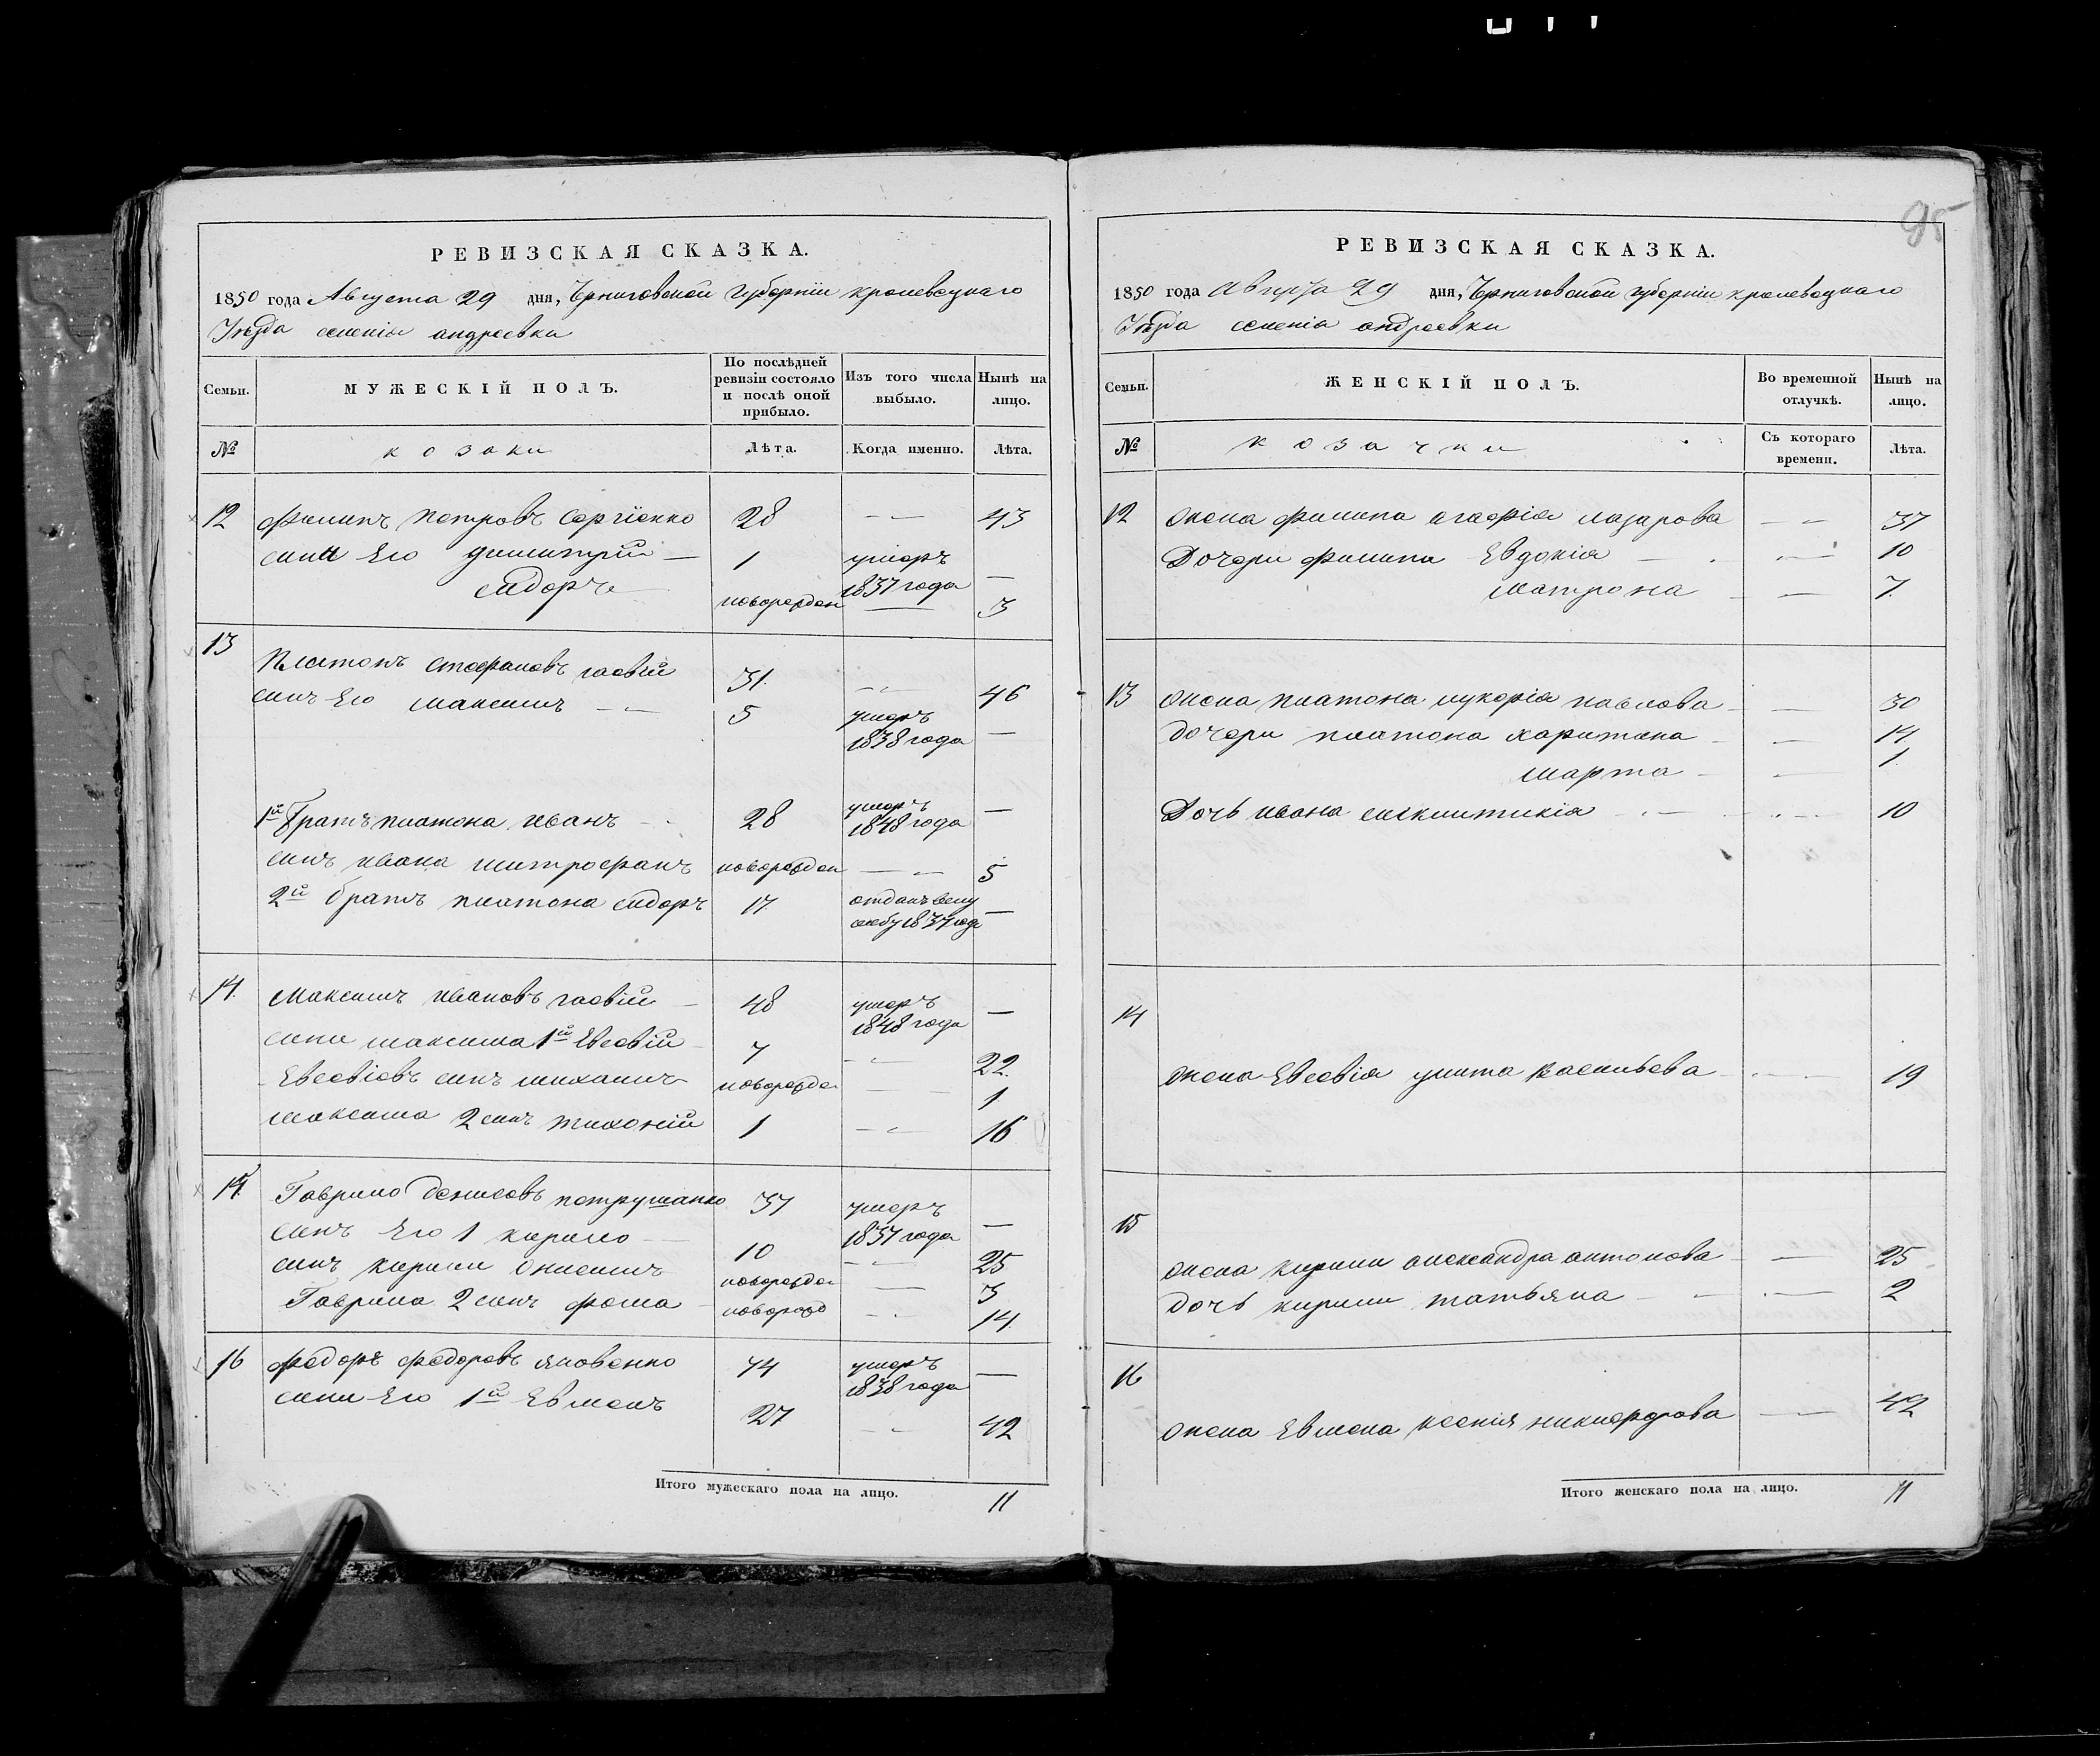 95
РЕВИЗСКАЯ СКАЗКА.
1850 года Августа 29 дня, Черниговской губернии кролевецкаго
Уѣзда селения андреевки
Семьи.
МУЖЕСКІЙ ПОЛЪ.
По послѣдней ревизіи состояло и послѣ оной прибыло.
Изъ того числа выбыло.
Нынѣ на лицо.
№
козаки
Лѣта.
Когда именно.
Лѣта.
12 филипъ петровъ Сергіенко 28 — 43
сини Его димитрій — 1 умеръ 1837 года —
сидоръ новорожден — 3
13 Платонъ стефановъ гаевій 31. — 46
синъ Его максимъ — 5 умеръ 1838 года —
1й братъ платона иванъ — 28 умеръ 1848 года —
синъ ивана митрофанъ новорожден — 5
2й братъ платона сидоръ 17. отданъ вслу жбу 1837 года —
14. Максимъ ивановъ гаевій — 48 умеръ 1848 года —
сини максима 1й Евсевій 7 — 22.
Евсевіевъ синъ михаилъ новорожде — 1
максима 2 синъ тихоній 1 — 16
14. Гаврило денисовъ петрушенко 37 умеръ 1837 года —
синъ Его 1 кирило — 10 — 25
синъ кирили Онисимъ новорожде — 3
Гаврила 2 синъ фома новорожд — 14.
16 федоръ федоровъ яковенко 74 умеръ 1838 года —
сини Его 1й Евменъ 27 — 42
Итого мужескаго пола на лицо. 11
РЕВИЗСКАЯ СКАЗКА.
1850 года Августа 29 дня, Черниговской губерніи кролевецкаго
Уѣзда селенія андреевки
Семьи.
ЖЕНСКІЙ ПОЛЪ.
Во временной отлучкѣ.
Нынѣ на лицо.
№
козачки
Съ котораго времени.
Лѣта.
12 жена филипа агафія лазарова — 37
Дочери филипа Евдокія — 10
матрона — 7.
13 жена платона лукерія павлова — 30
дочери платона харитина — 14
марта — 1.
Дочь ивана — 10
14
жена Евсевія улита васильева — 19
15
жена кирили александра антонова — 25
дочь кирили татьяна — 2
16
жена Евмена ксенія никифорова — 42
Итого женскаго пола на лицо. 11